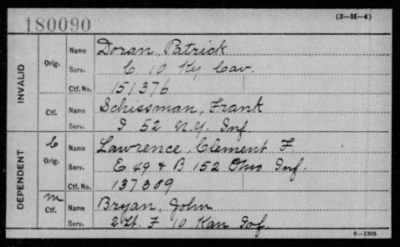 180090
(3-H-4)
INVALID
Orig.
Name Doran, Patrick
Serv. C 10 Ky Cav.
Ctf. No. 151376
Ctf.
Name Schissman, Frank
Serv. I 52 N.Y. Inf.
DEPENDENT
C
Orig.
Name Lawrence, Clement F.
Serv. E 49 & B 152 Ohio Inf.
Ctf. No. 137309
m
Ctf.
Name Bryan, John
Serv. 2 Lt. F 10 Kan Inf.